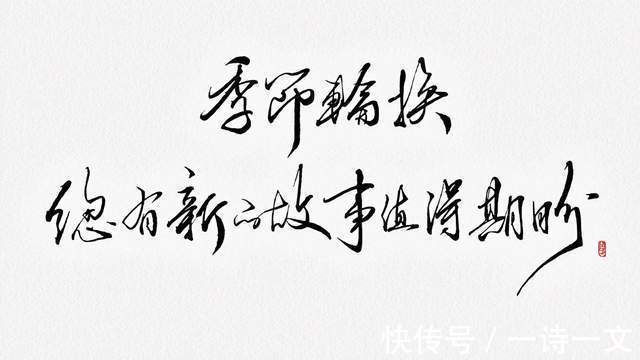 季節輪換
總有新的故事值得期盼
快传号 / 一诗一文